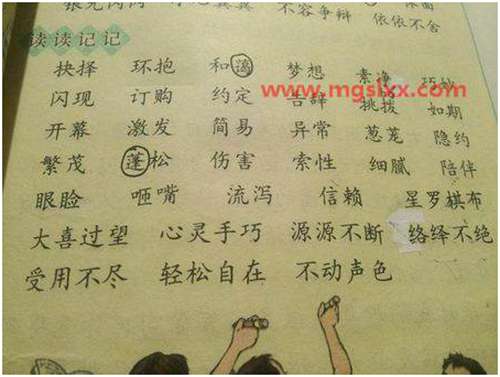 不容争辩
依依不舍
读读记记
抉择 环抱 和蔼 梦想 素净 巧妙
www.mgslxx.com
闪现 订购 约定 告辞 挑拨 如期
开幕 激发 简易 异常 葱茏 隐约
繁茂 蓬松 伤害 索性 细腻 陪伴
眼睑 咂嘴 流泻 信赖 星罗棋布
大喜过望 心灵手巧 源源不断 络绎不绝
受用不尽 轻松自在 不动声色